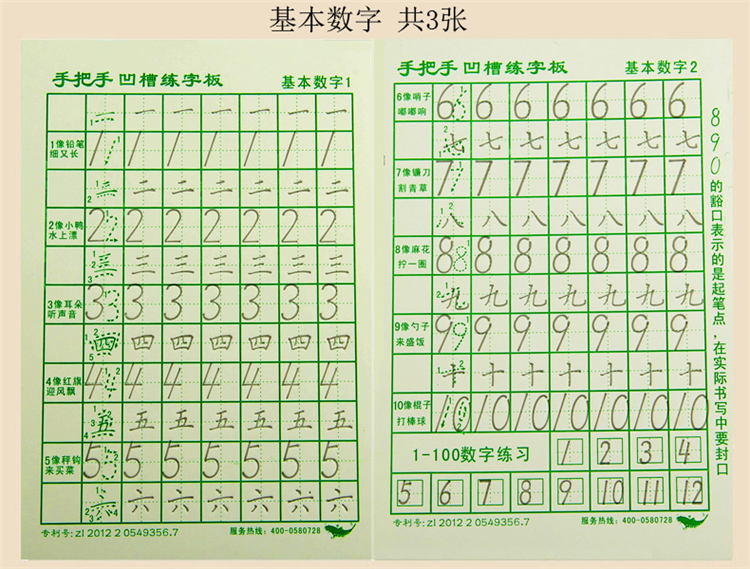 基本数字 共3张
手把手 凹槽练字板 基本数字1
一 一 一 一 一 一 一
1像铅笔 细又长 1 1 1 1 1 1 1
二 二 二 二 二 二 二
2像小鸭 水上漂 2 2 2 2 2 2 2
三 三 三 三 三 三 三
3像耳朵 听声音 3 3 3 3 3 3 3
四 四 四 四 四 四 四
4像红旗 迎风飘 4 4 4 4 4 4 4
五 五 五 五 五 五 五
5像秤钩 来买菜 5 5 5 5 5 5 5
六 六 六 六 六 六 六
专利号: zl 2012 2 0549356.7 服务热线: 400-0580728
手把手 凹槽练字板 基本数字2
6像哨子 嘟嘟响 6 6 6 6 6 6 6
七 七 七 七 七 七 七
7像镰刀 割青草 7 7 7 7 7 7 7
八 八 八 八 八 八 八
8像麻花 拧一圈 8 8 8 8 8 8 8
九 九 九 九 九 九 九
9像勺子 来盛饭 9 9 9 9 9 9 9
十 十 十 十 十 十 十
10像棍子 打棒球 10 10 10 10 10 10 10
1-100数字练习 1 2 3 4
5 6 7 8 9 10 11 12
专利号: zl 2012 2 0549356.7 服务热线: 400-0580728
890的豁口表示的是起笔点,在实际书写中要封口